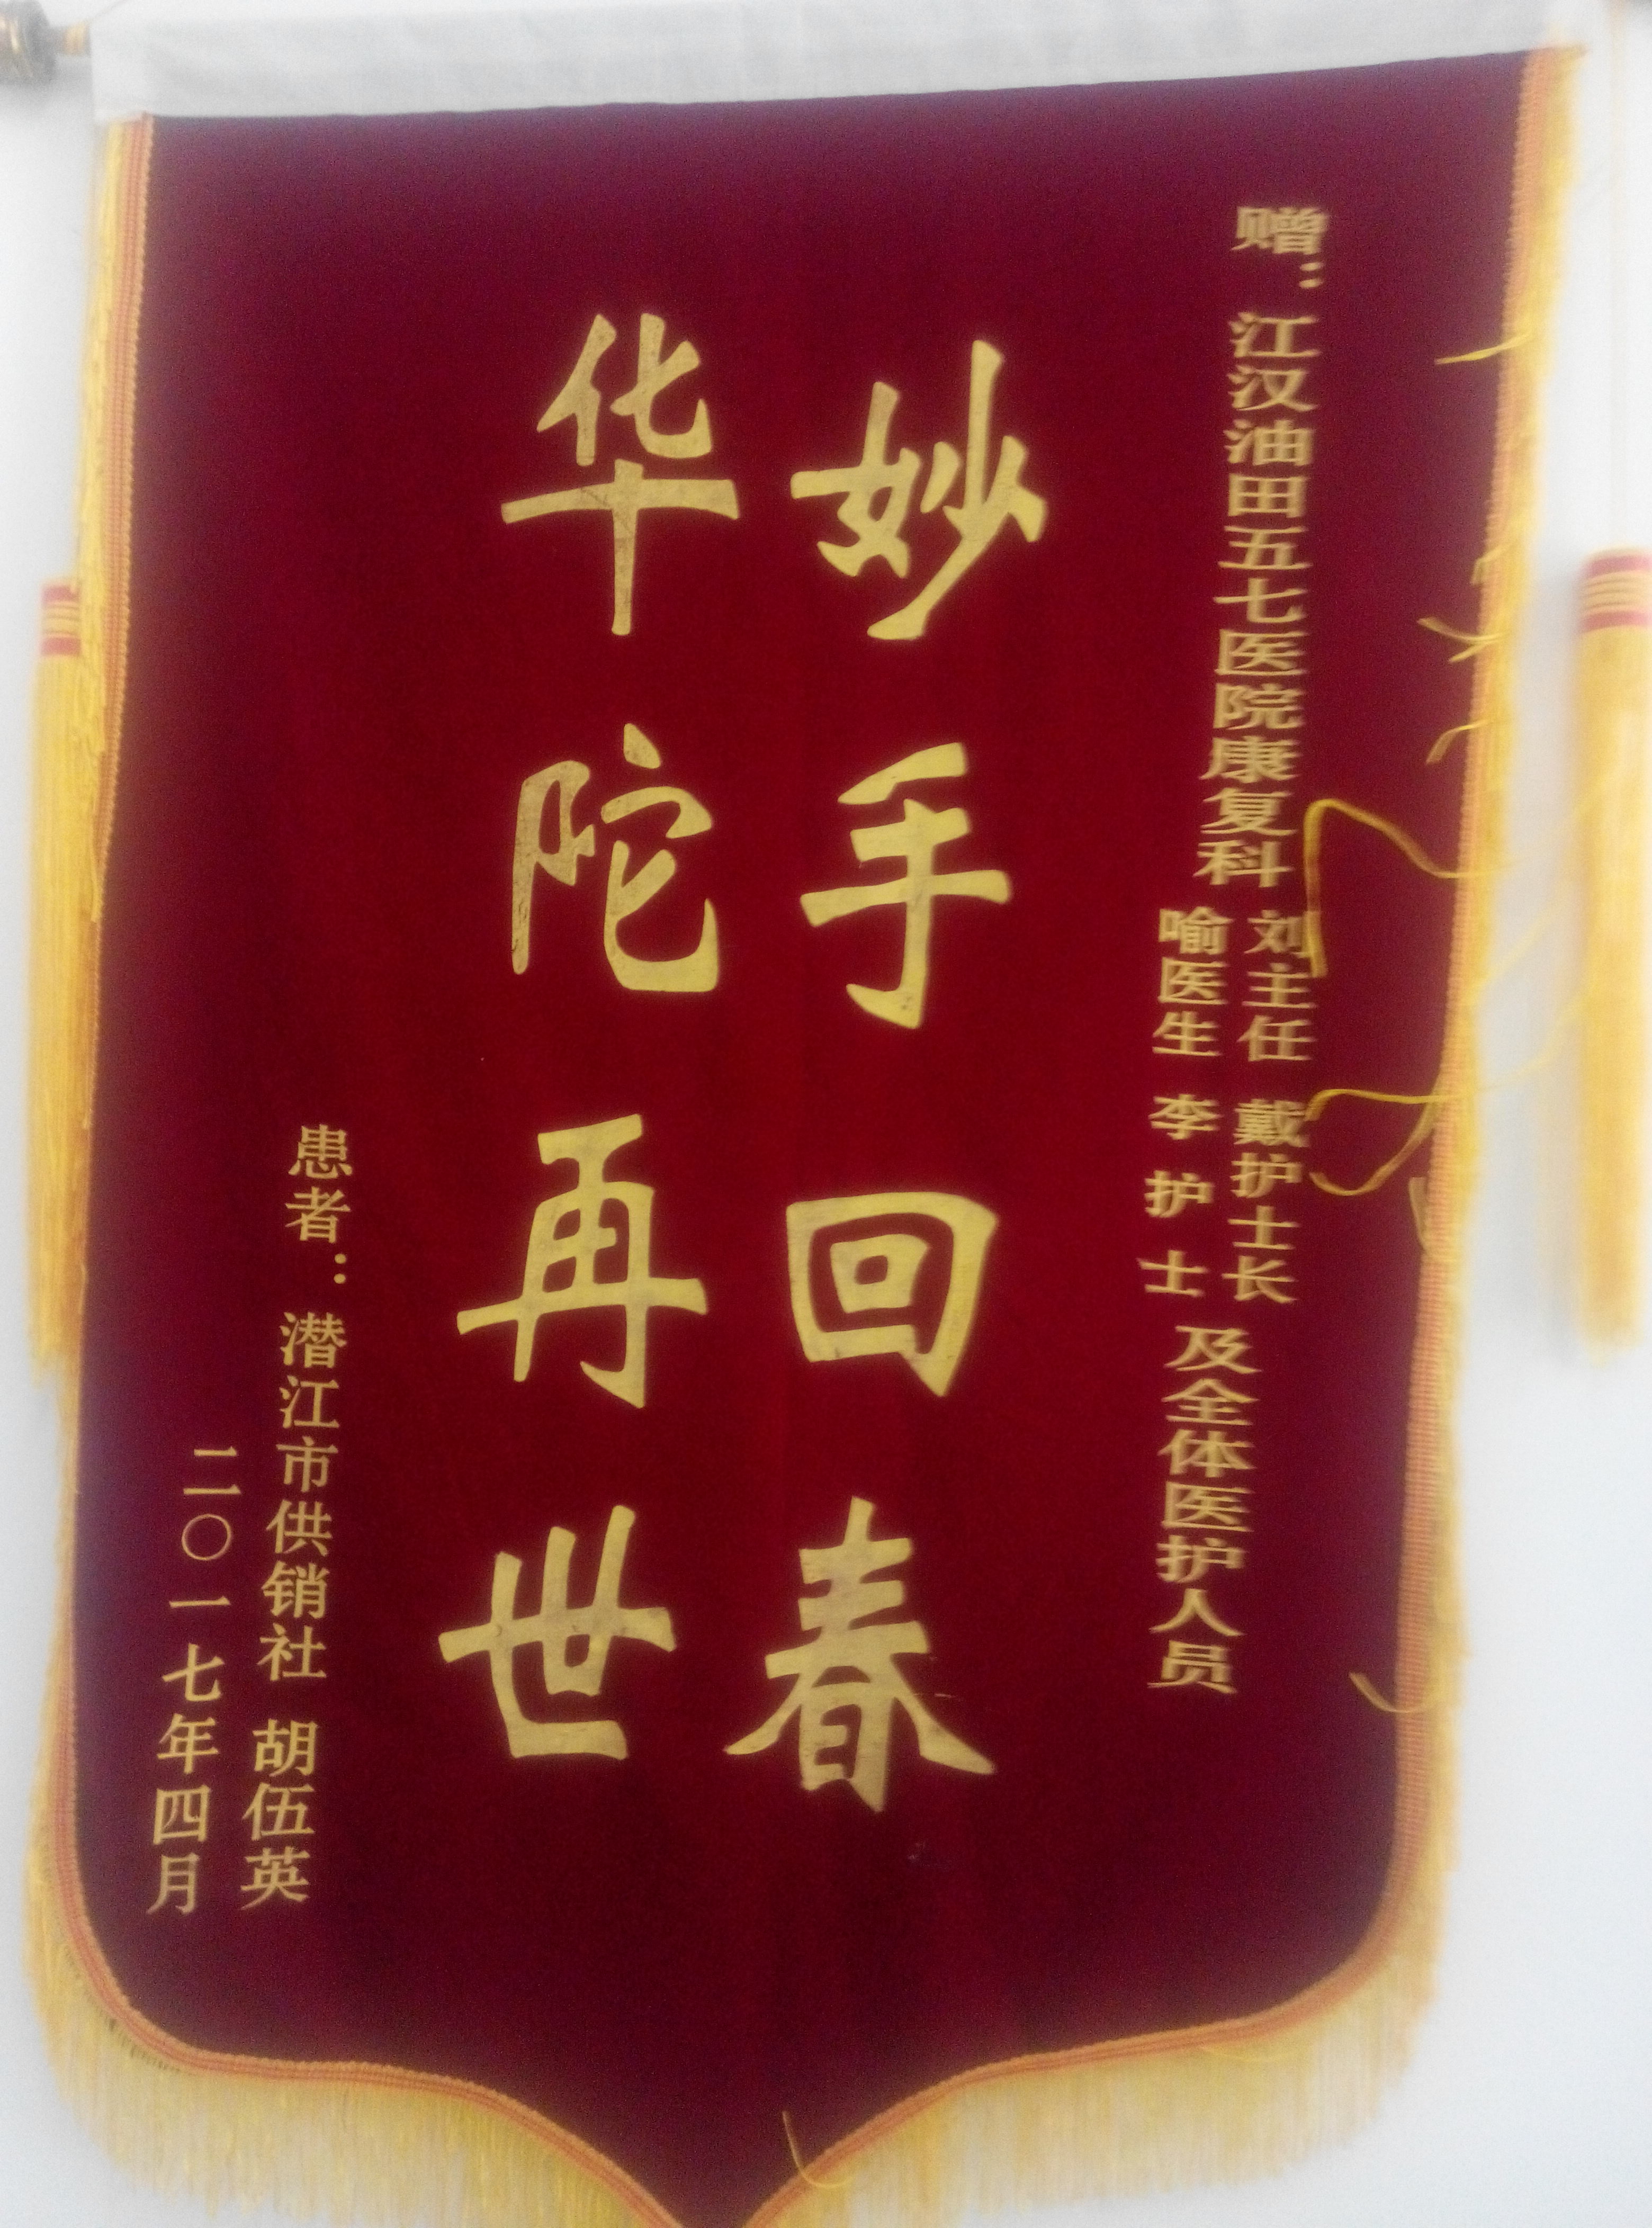 赠：江汉油田五七医院康复科
刘主任 戴护士长
喻医生 李护士
及全体医护人员
妙手回春
华陀再世
患者：潜江市供销社 胡伍英
二〇一七年四月